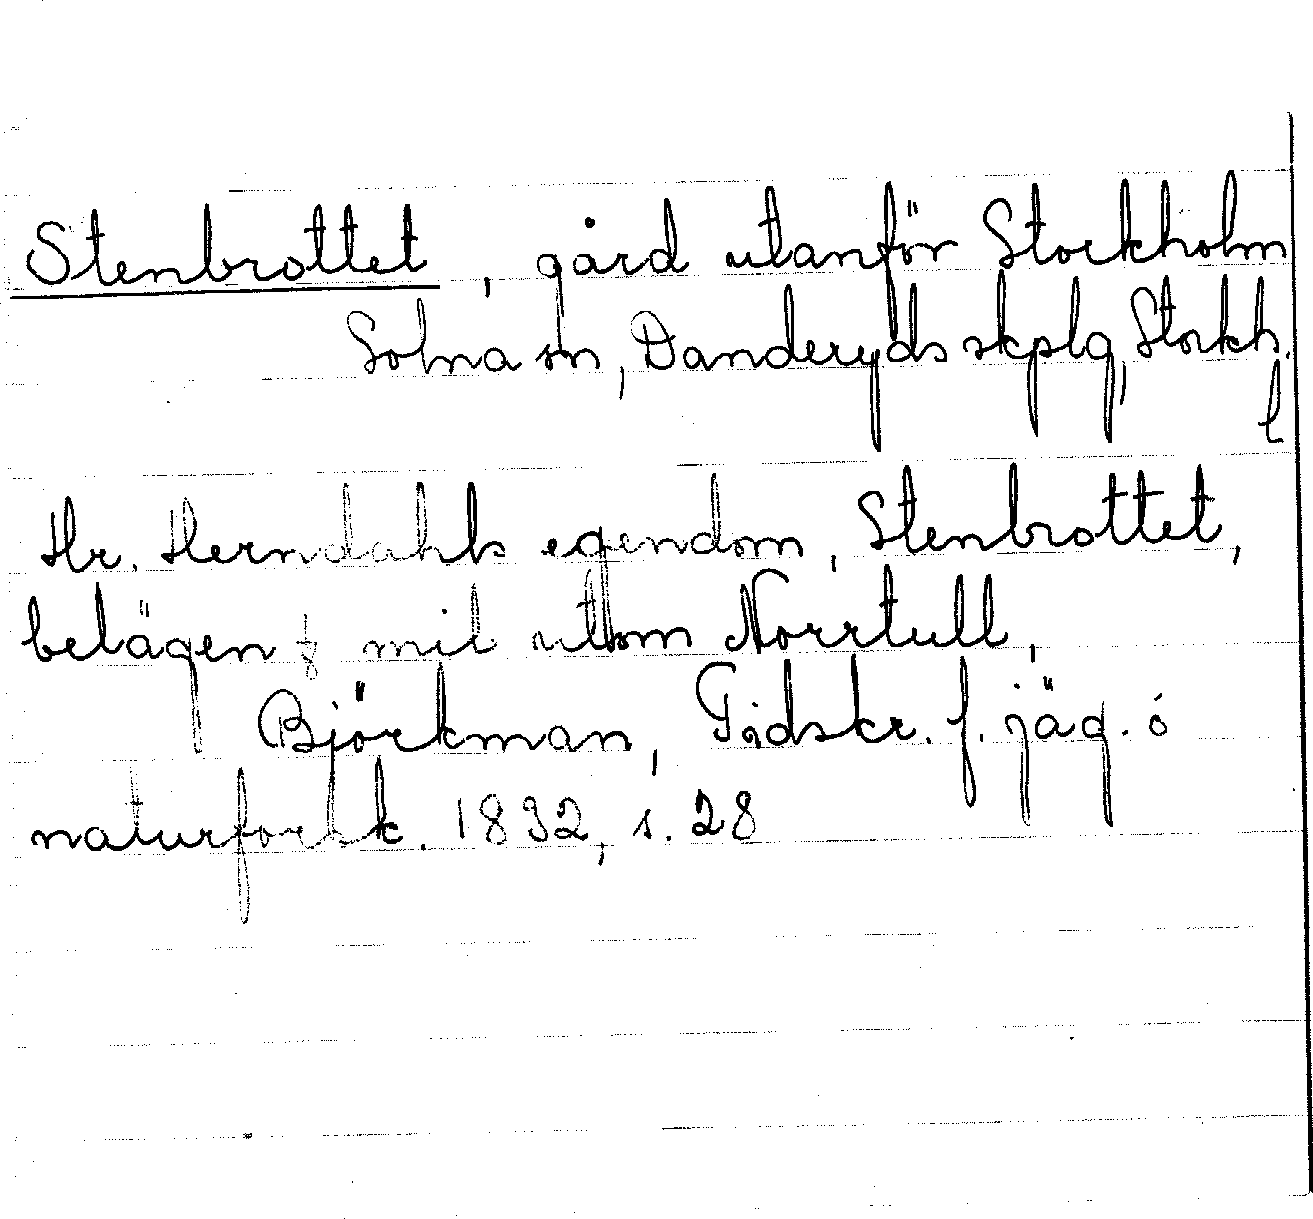 Stenbrottet, gård utanför Stockholm
Solna sn, Danderyds skplg, Stockh.
l
Hr. Herndahls egendom, Stenbrottet,
belägen mil utom Norrtull,
Björkman, Tidskr. f. jäg. o
naturforsk. 1832, s. 28